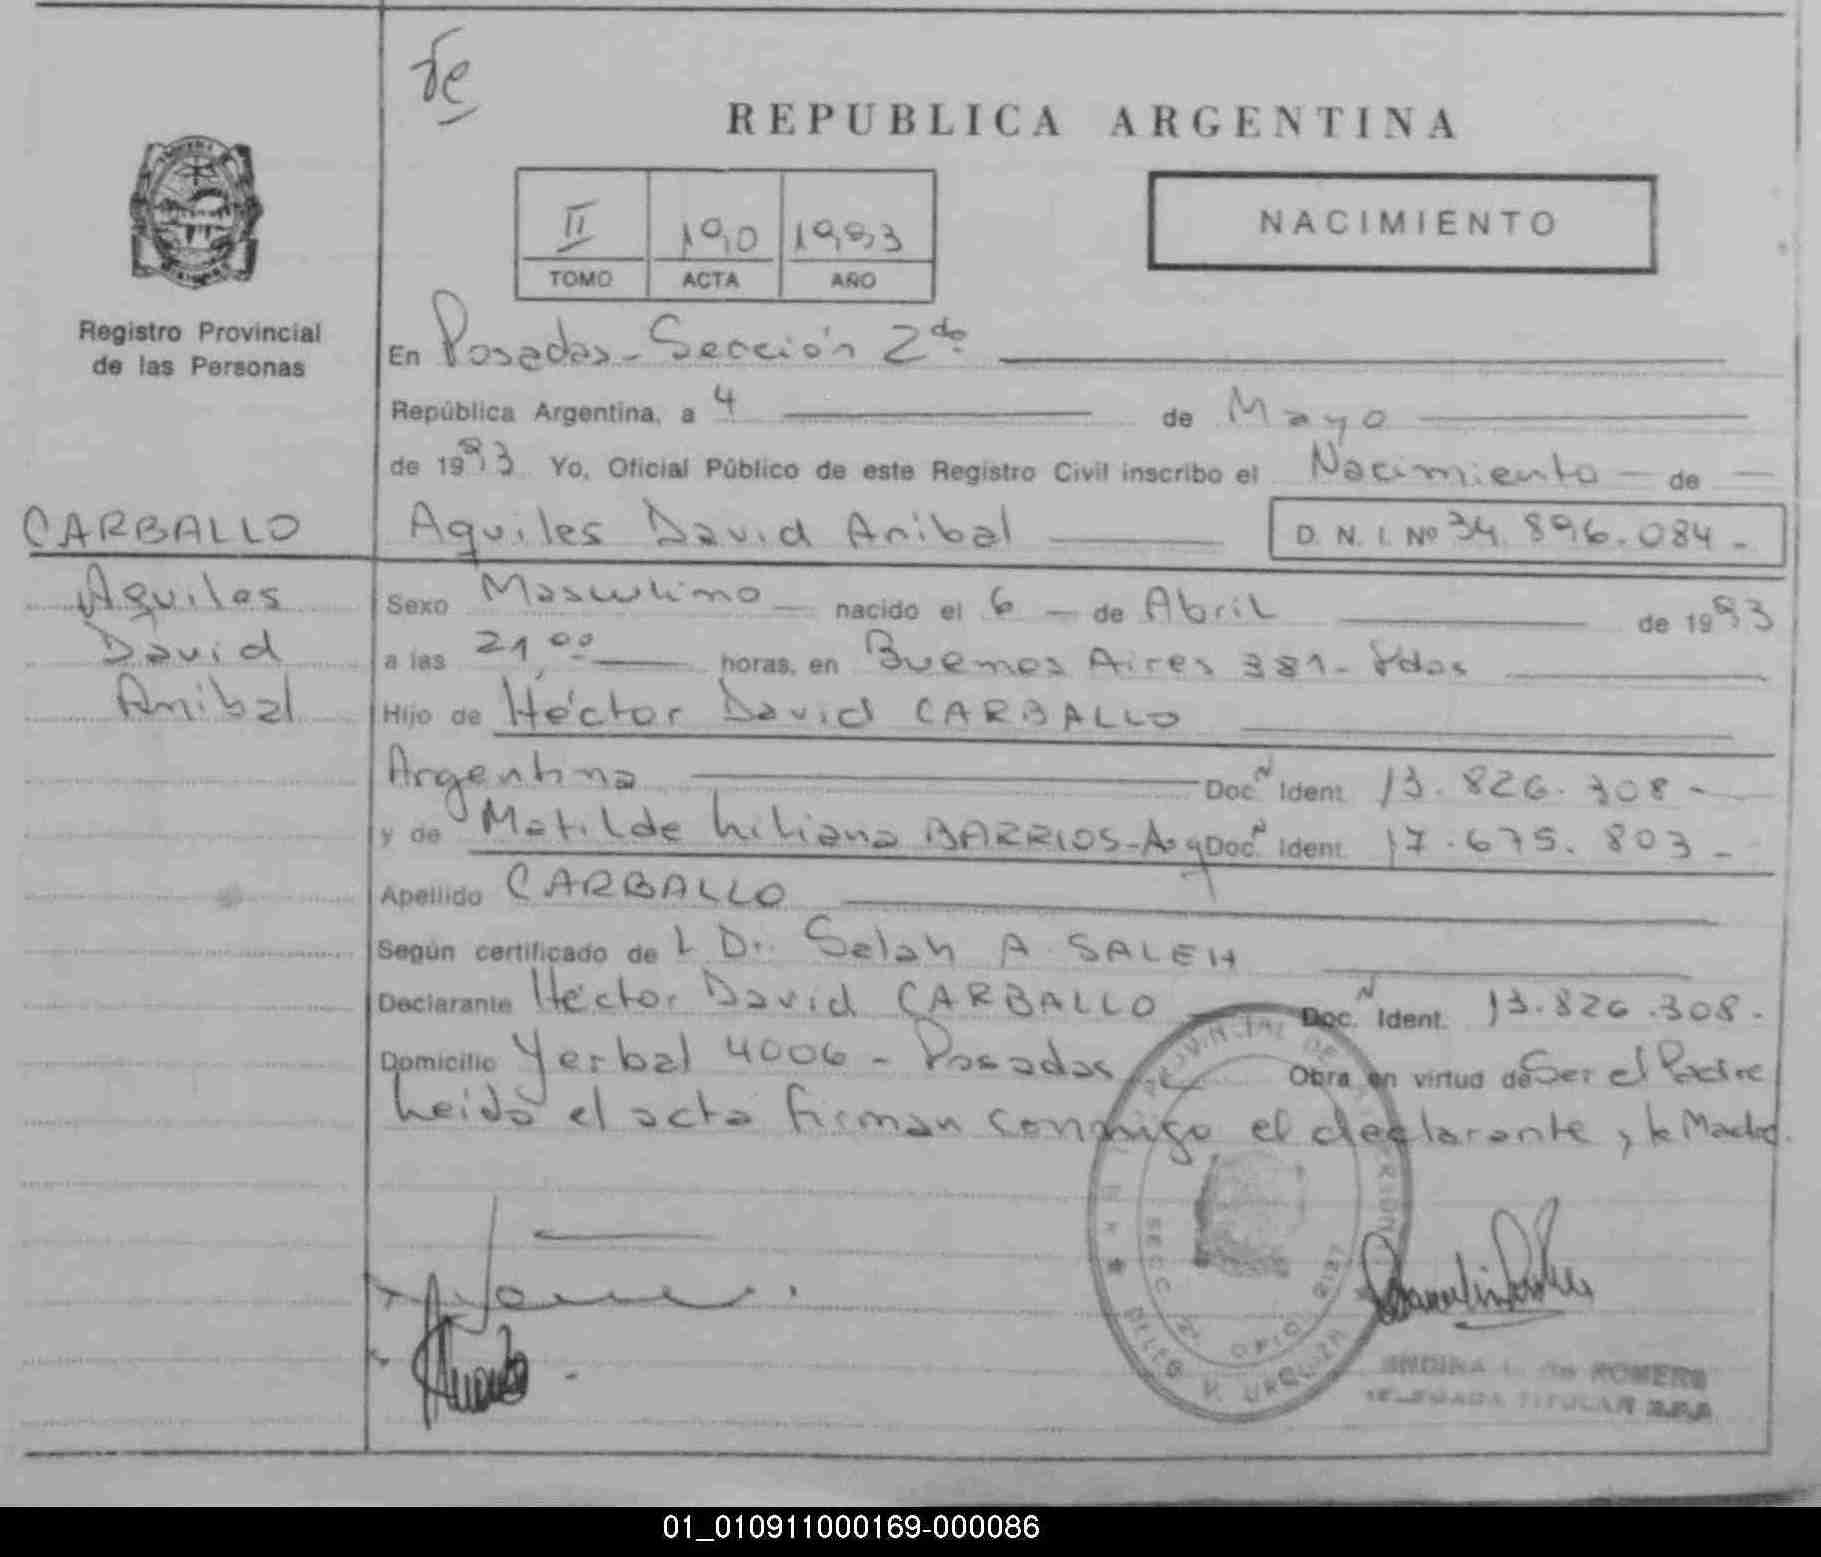 Te
REPUBLICA ARGENTINA
II 190 1993
TOMO ACTA AÑO
NACIMIENTO
Registro Provincial
de las Personas
En Posadas - Sección 2da
República Argentina, a 4 de Mayo
de 1993 Yo, Oficial Público de este Registro Civil inscribo el Nacimiento - de
CARBALLO Aquiles David Anibal D. N. I. Nº 34.896.084 -
Aquiles
David
Anibal
Sexo Masculino nacido el 6 - de Abril de 1993
a las 21,00 horas, en Buenos Aires 381 - Pdas
Hijo de Héctor David CARBALLO
Argentina Doc. N Ident. 13.826.308 -
y de Matilde Liliana BARRIOS - Arg Doc. N Ident. 17.675.803 -
Apellido CARBALLO
Según certificado de L Dr. Salah A. SALEH
Declarante Héctor David CARBALLO Doc. N Ident. 13.826.308.
Domicilio Yerbal 4006 - Posadas Obra en virtud de Ser el Padre
Leida el acta firman conmigo el declarante y la Madre.
PROVINCIAL DE
SECC 2
DELEG V. URQUIZA
DE ROMERO
DELEGADA TITULAR
01_010911000169-000086